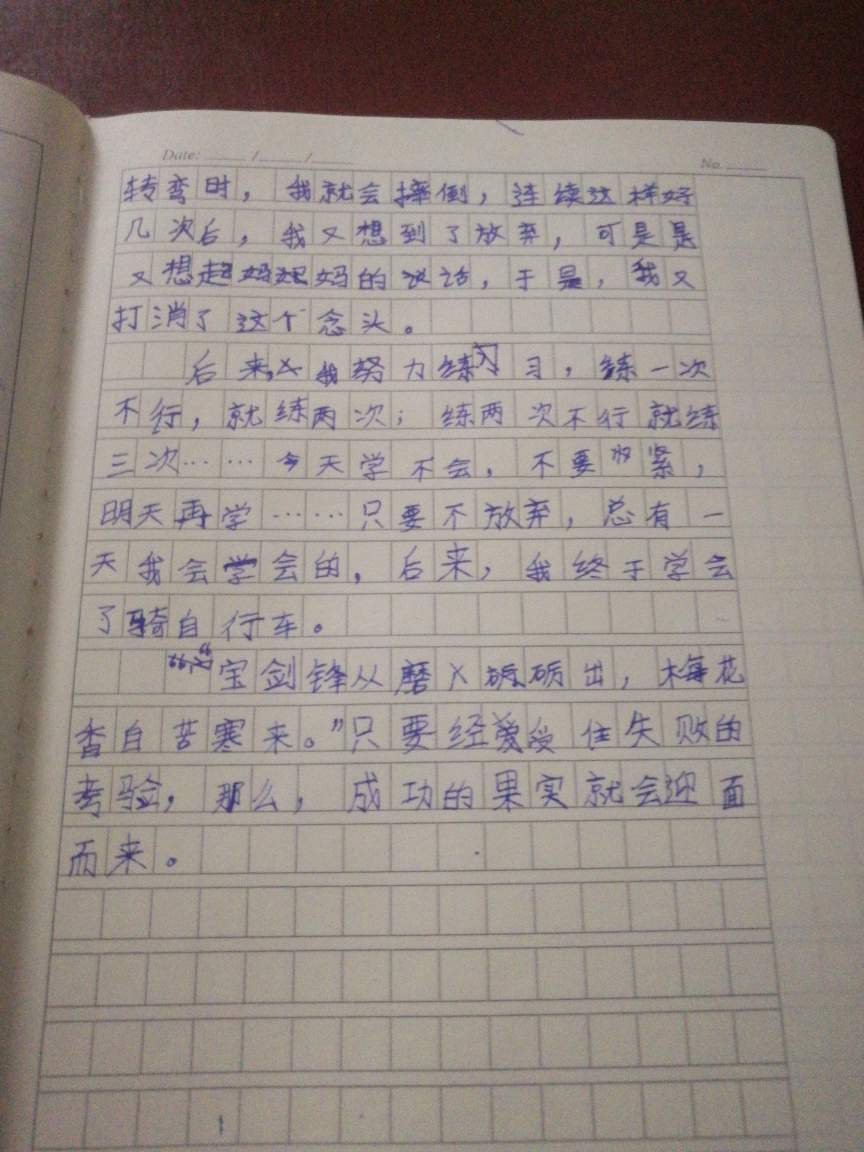 Date: ___ /___/___
No. ___
转弯时，我就会摔倒，连续这样好
几次后，我又想到了放弃，可是是
又想起妈妈的话，于是，我又
打消了这个念头。
后来，我努力练习，练一次
不行，就练两次；练两次不行就练
三次……今天学不会，不要紧，
明天再学……只要不放弃，总有一
天我会学会的，后来，我终于学会
了骑自行车。
“宝剑锋从磨砺出，梅花
香自苦寒来。”只要经受住失败的
考验，那么，成功的果实就会迎面
而来。